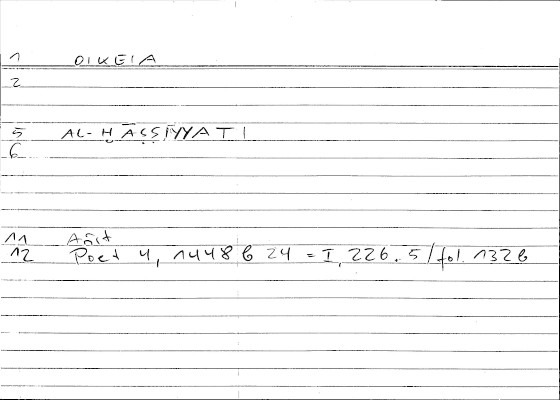 1 OIKEIA
2
5 AL-ḪĀṢṢĪYYATI
6
11 Arist
12 Poet 4, 1448 b 24 = I, 226.5 / fol. 132 b